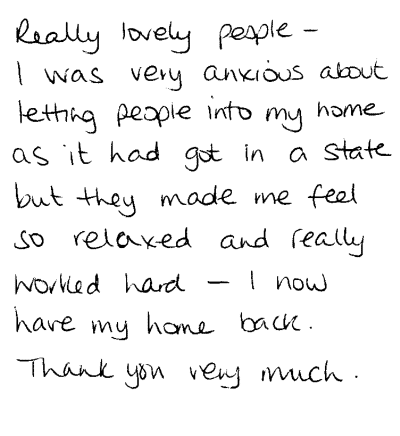 Really lovely people –
I was very anxious about
letting people into my home
as it had got in a state
but they made me feel
so relaxed and really
worked hard – I now
have my home back.
Thank you very much.